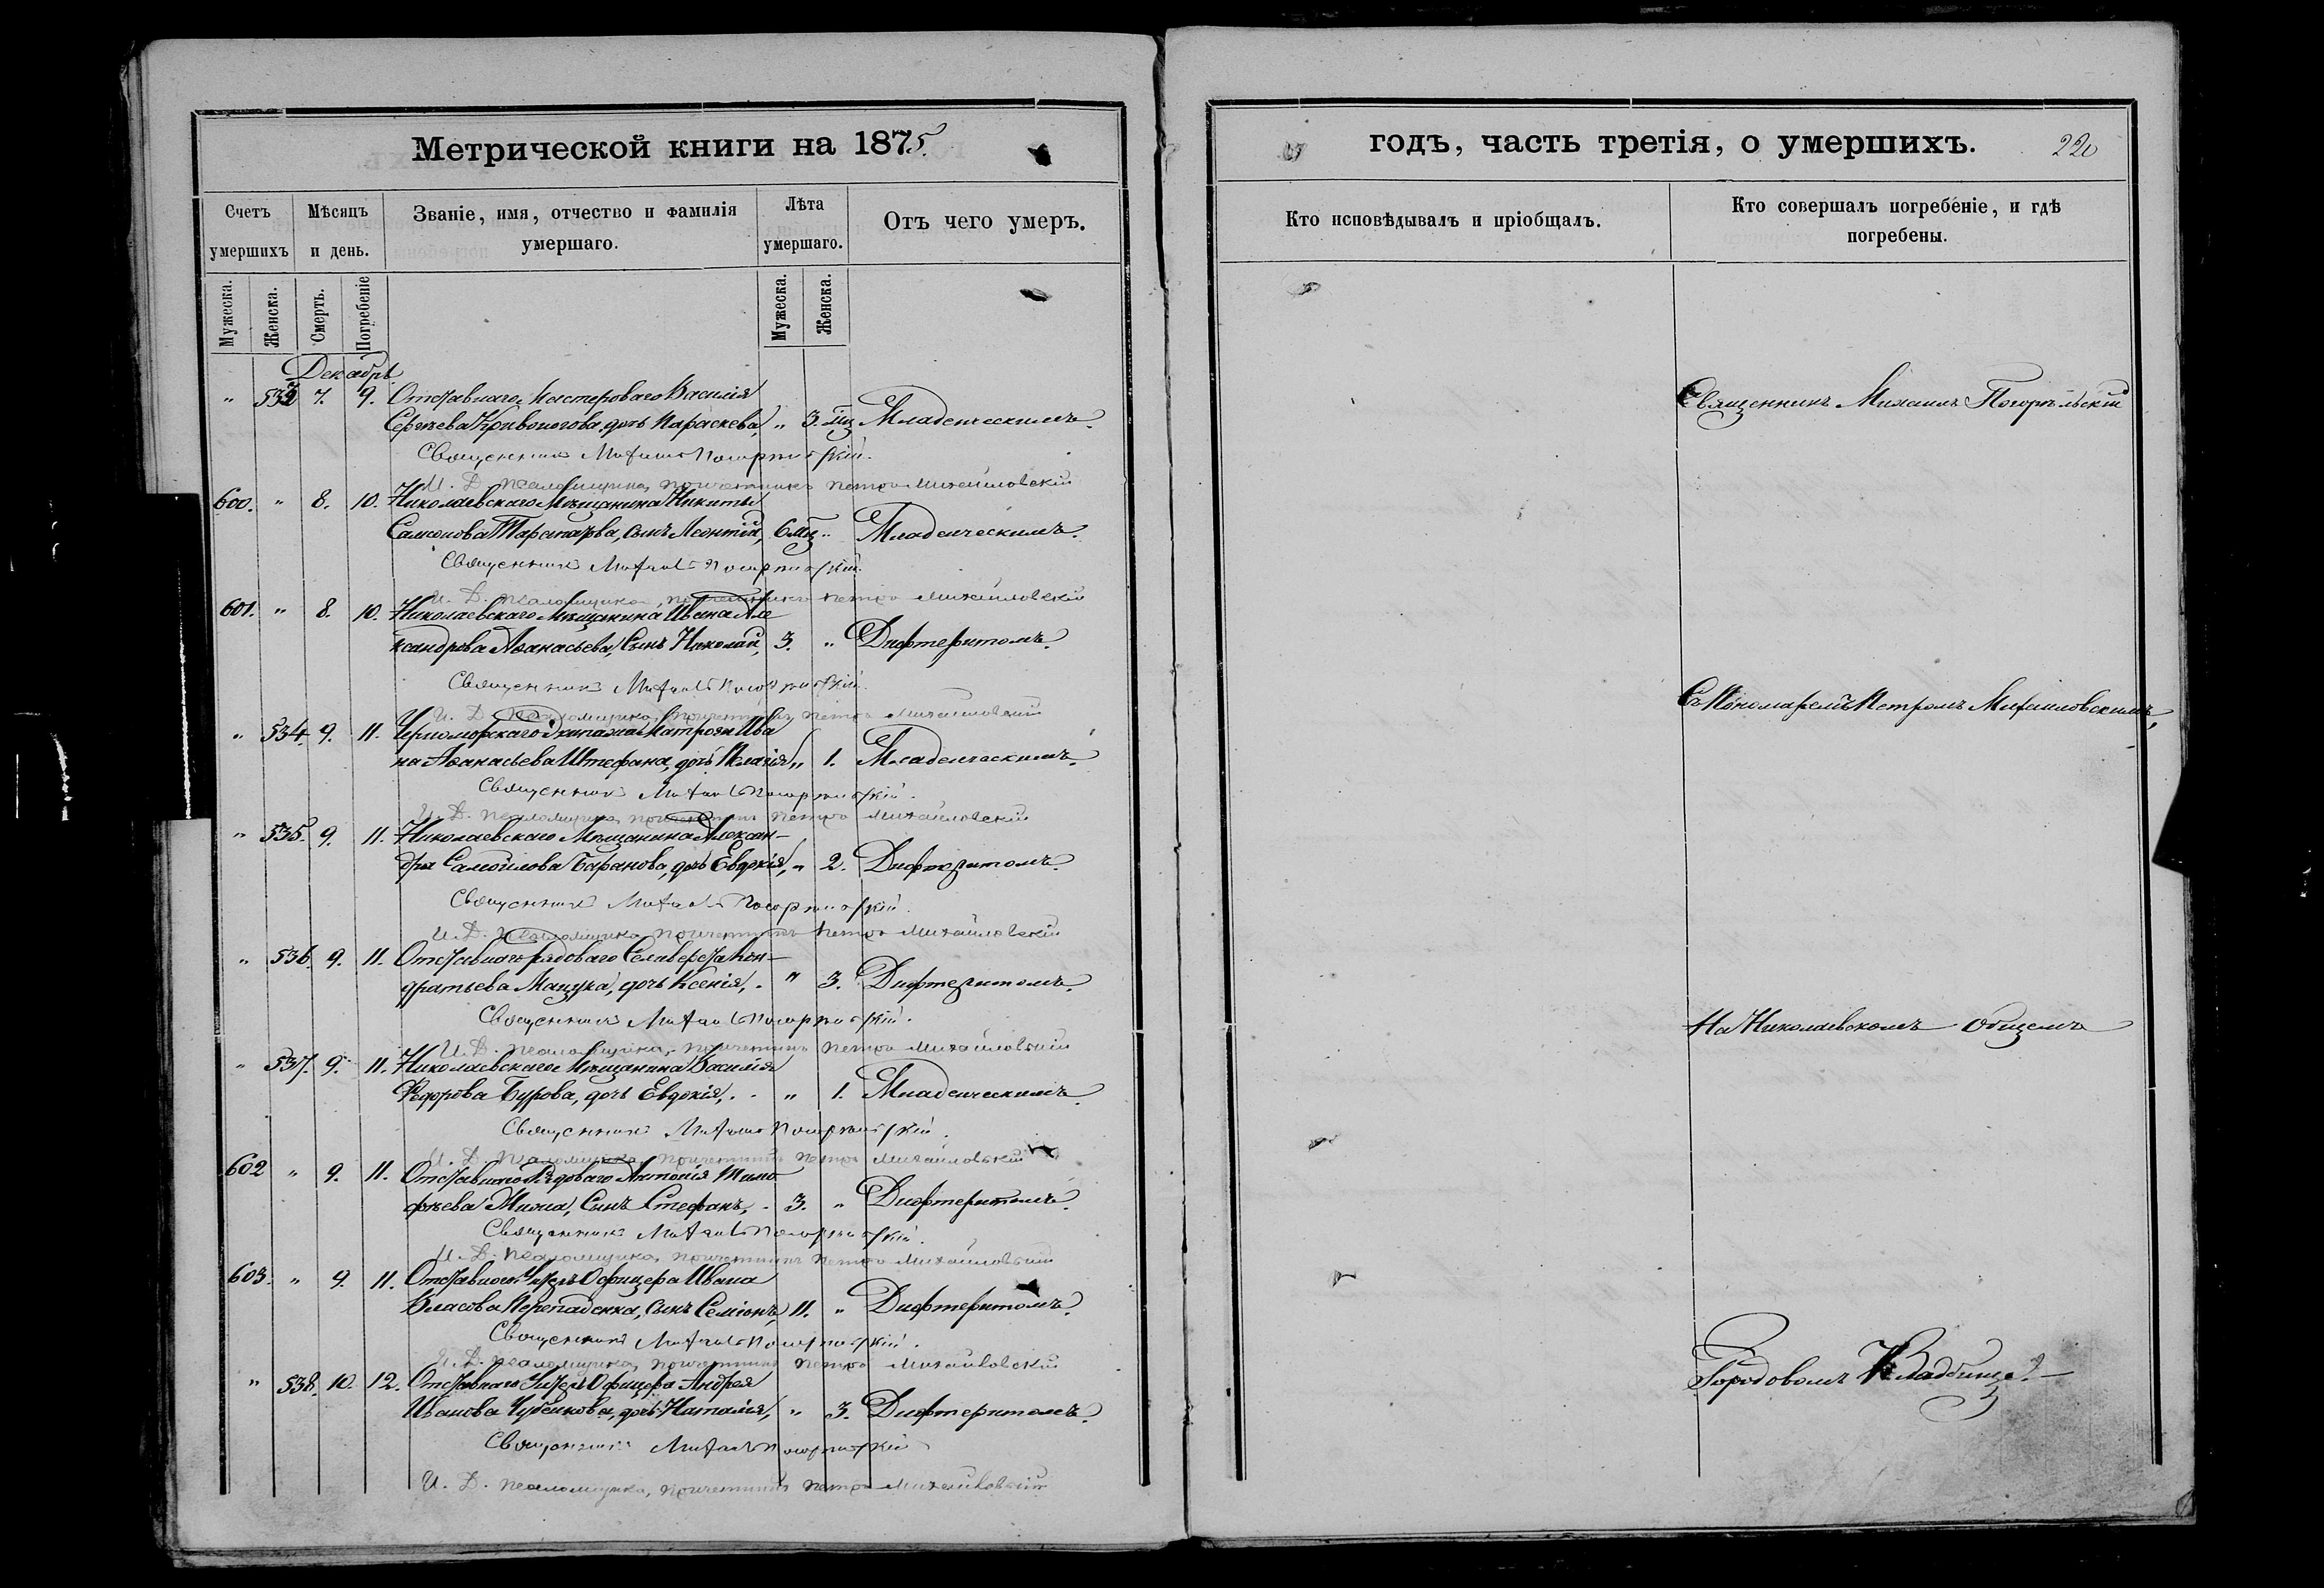 Метрической книги на 1875.
Счетъ умершихъ
Мѣсяцъ и день.
Званіе, имя, отчество и фамилія умершаго.
Лѣта умершаго.
Отъ чего умеръ.
Мужеска.
Женска.
Смерть.
Погребеніе
Мужеска.
Женска.
Декабрь
" 533 7. 9. Отставнаго Мастероваго Василія
Сергѣева Кривоногова, дочь Параскева, " 3. мц Младенческимъ.
Священникъ Михаилъ Погорѣльскій.
И. Д. псаломщика, причетникъ Петръ Михайловскій
600. " 8. 10. Николаевскаго Мѣщанина Никиты
Самсонова, сынъ Леонтій, 6 мц " Младенческимъ.
Священникъ Михаилъ Погорѣльскій.
И. Д. псаломщика, причетникъ Петръ Михайловскій
601. " 8. 10. Николаевскаго Мѣщанина Ивана Але
ксандрова Аѳанасьева, Сынъ Николай, 3. " Дифтеритомъ.
Священникъ Михаилъ Погорѣльскій.
И. Д. псаломщика, причетникъ Петръ Михайловскій
" 534. 9. 11. Черноморскаго Экипажа Матроза Ива
на Аѳанасьева Штефана, дочь Пелагія, " 1. Младенческимъ.
Священникъ Михаилъ Погорѣльскій.
И. Д. псаломщика, причетникъ Петръ Михайловскій
" 535. 9. 11. Николаевскаго Мѣщанина Алексан-
дра Самойлова Баранова, дочь Евдокія, " 2. Дифтеритомъ.
Священникъ Михаилъ Погорѣльскій.
И. Д. псаломщика, причетникъ Петръ Михайловскій
" 536. 9. 11. Отставнаго рядоваго Селиверста Кон-
дратьева Мацука, дочь Ксенія, . " 3. Дифтеритомъ.
Священникъ Михаилъ Погорѣльскій.
И. Д. псаломщика, причетникъ Петръ Михайловскій
" 537. 9. 11. Николаевскаго Мѣщанина Василія
Ѳедорова Бурова, дочь Евдокія, . . " 1. Младенческимъ.
Священникъ Михаилъ Погорѣльскій.
И. Д. псаломщика, причетникъ Петръ Михайловскій
602 " 9. 11. Отставнаго Рядоваго Антонія Тимо
фѣева, Сынъ Стефанъ, . 3. " Дифтеритомъ.
Священникъ Михаилъ Погорѣльскій.
И. Д. псаломщика, причетникъ Петръ Михайловскій
603. " 9. 11. Отставнаго Унтеръ Офицера Ивана
Власова Перепаденка, сынъ Семіонъ, 11. " Дифтеритомъ.
Священникъ Михаилъ Погорѣльскій.
И. Д. псаломщика, причетникъ Петръ Михайловскій
" 538. 10. 12. Отставнаго Унтеръ Офицера Андрея
Иванова Чубенкова, дочь Наталія, " 3. Дифтеритомъ.
Священникъ Михаилъ Погорѣльскій
И. Д. псаломщика, причетникъ Петръ Михайловскій
годъ, часть третія, о умершихъ.
220
Кто исповѣдывалъ и пріобщалъ.
Кто совершалъ погребéніе, и гдѣ погребены.
Священникъ Михаилъ Погорѣльскій
Съ Пономаремъ Петромъ Михайловскимъ,
На Николаевскомъ Общемъ
Городовомъ Кладбище.